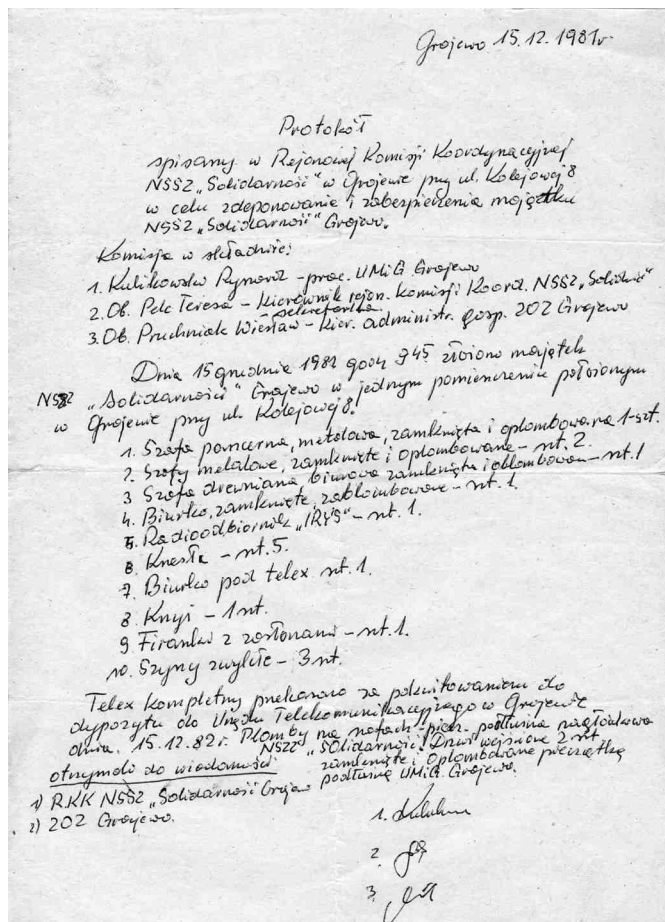 Grajewo 15.12.1981r.
Protokół
spisany w Rejonowej Komisji Koordynacyjnej
NSSZ „Solidarność” w Grajewie przy ul. Kolejowej 8
w celu zdeponowania i zabezpieczenia majątku
NSSZ „Solidarność” Grajewo.
Komisja w składzie:
1. Kulikowski Ryszard – prac. UMiG Grajewo
2. Ob. Pelc Teresa – kierownik rejon. Komisji Koord. NSSZ „Solidność”
– sekretarka
3. Ob. Pruchniak Wiesław – kier. administr. gosp. 202 Grajewo
Dnia 15 grudnia 1981 godz 9 45 złożono majątek
NSSZ „Solidarności” Grajewo w jednym pomieszczeniu położonym
w Grajewie przy ul. Kolejowej 8.
1. Szafa pancerna, metalowa, zamknięta i oplombowana 1-szt.
2. Szafy metalowe, zamknięte i oplombowane – szt. 2.
3 Szafa drewniana biurowa zamknięta i oblombowan – szt. 1
4. Biurko, zamknięte, zablombowane – szt. 1.
5. Radioodbiornik „IRYS” – szt. 1.
6. Krzesła – szt. 5.
7. Biurko pod telex szt. 1.
8. – 1 szt.
9. Firanki z zasłonami – szt. 1.
10. Szyny zwykłe – 3 szt.
Telex kompletny przekazano za pokwitowaniem do
depozytu do Urzędu Telekomunikacyjnego w Grajewie
dnia. 15.12.82r. Plomby na szafach – piecz. podłużna nagłówkowa
NSZZ „Solidarność”. Drzwi wejściowe 2 szt
otrzymali do wiadomości zamknięte i oplombowane pieczątką
1) RKK NSSZ „Solidarność Grajew podłużną UMiG Grajewo.
2) 202 Grajewo.
1.
2.
3.